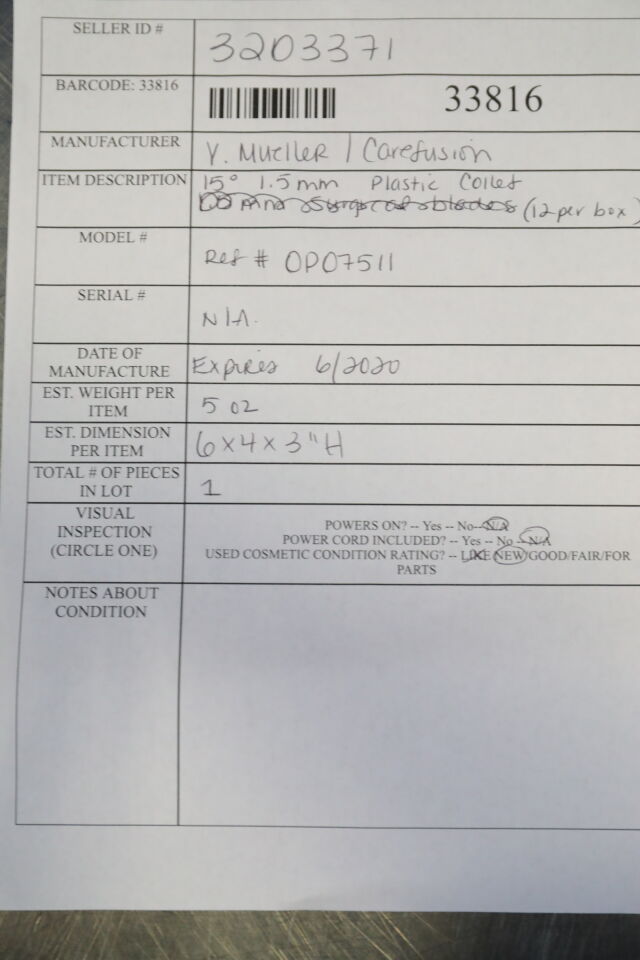 SELLER ID #
3203371
BARCODE: 33816
33816
MANUFACTURER
V. Mueller / Carefusion
ITEM DESCRIPTION
15° 1.5mm Plastic Collet
surgical blades (12 per box)
MODEL #
Ref # OP07511
SERIAL #
N/A.
DATE OF
MANUFACTURE
Expires 6/2020
EST. WEIGHT PER
ITEM
5 oz
EST. DIMENSION
PER ITEM
6x4x3"H
TOTAL # OF PIECES
IN LOT
1
VISUAL
INSPECTION
(CIRCLE ONE)
POWERS ON? -- Yes -- No--N/A
POWER CORD INCLUDED? -- Yes -- No --N/A
USED COSMETIC CONDITION RATING? -- LIKE NEW/GOOD/FAIR/FOR
PARTS
NOTES ABOUT
CONDITION